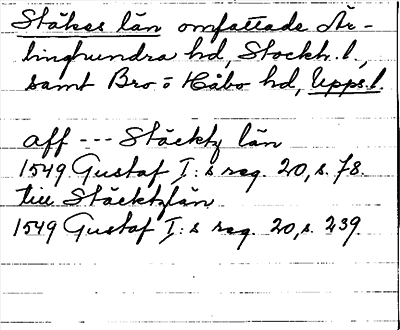 Stäkes län omfattade Är-
linghundra hd, Stockh. l.,
samt Bro o Håbo hd, Upps. l.
aff --- Stäcktz län
1549 Gustaf I:s reg. 20, s. 78.
till Stäcktzlän
1549 Gustaf I:s reg. 20, s. 239.